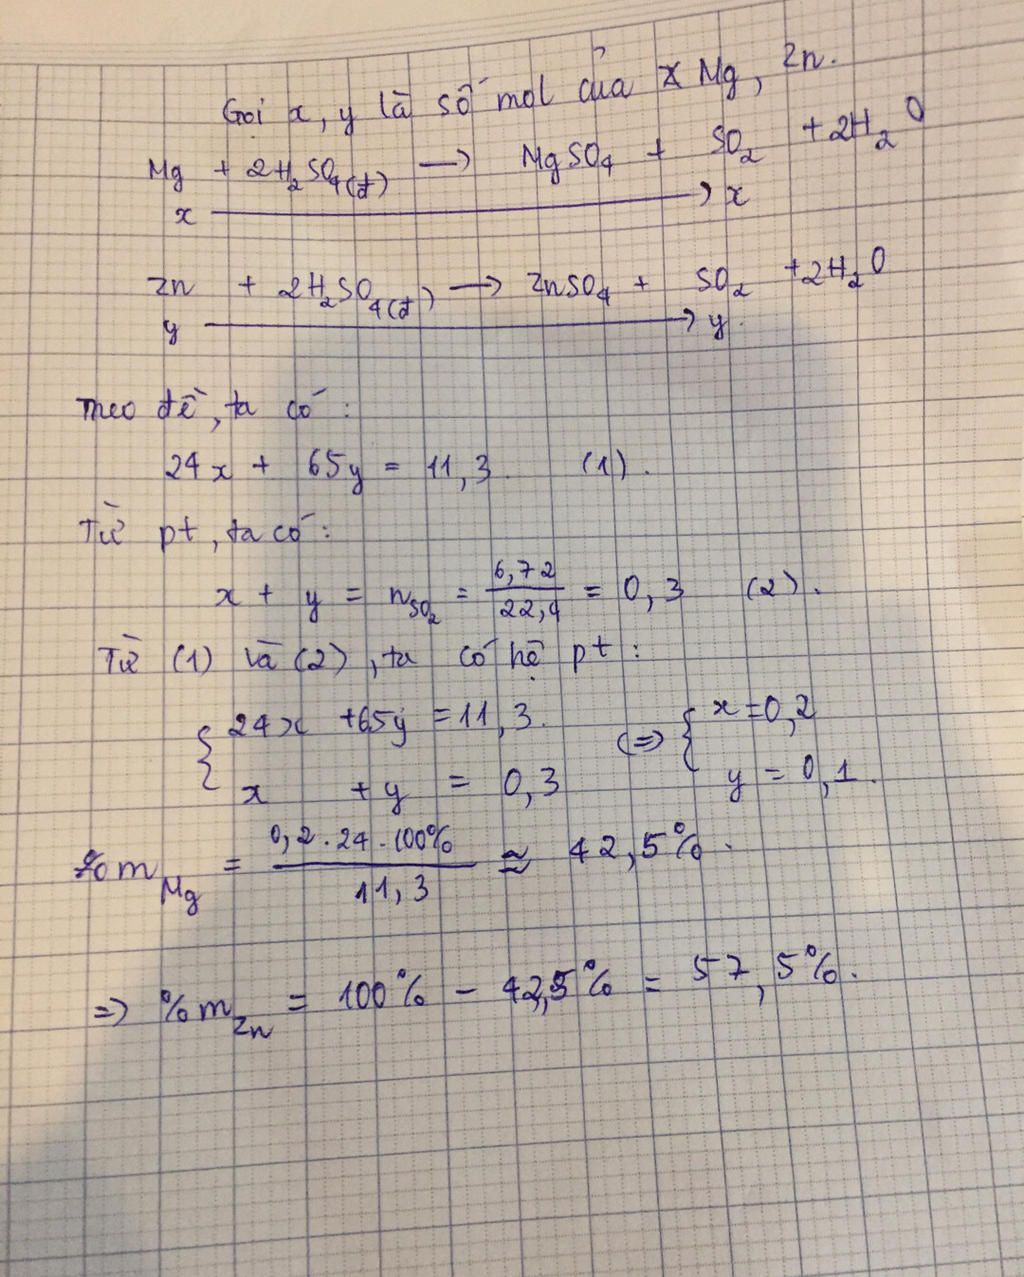 Gọi x, y là số mol của Mg, Zn.
Mg + 2H₂SO₄(đ) → MgSO₄ + SO₂ + 2H₂O
x → x
Zn + 2H₂SO₄(đ) → ZnSO₄ + SO₂ + 2H₂O
y → y.
Theo đề, ta có:
24x + 65y = 11,3 (1).
Từ pt, ta có:
x + y = nSO₂ = 6,72/22,4 = 0,3 (2).
Từ (1) và (2), ta có hệ pt:
{ 24x + 65y = 11,3. (=) { x = 0,2
x + y = 0,3 y = 0,1.
%mMg = 0,2.24.100%/11,3 ≈ 42,5%.
=) %mZn = 100% - 42,5% = 57,5%.